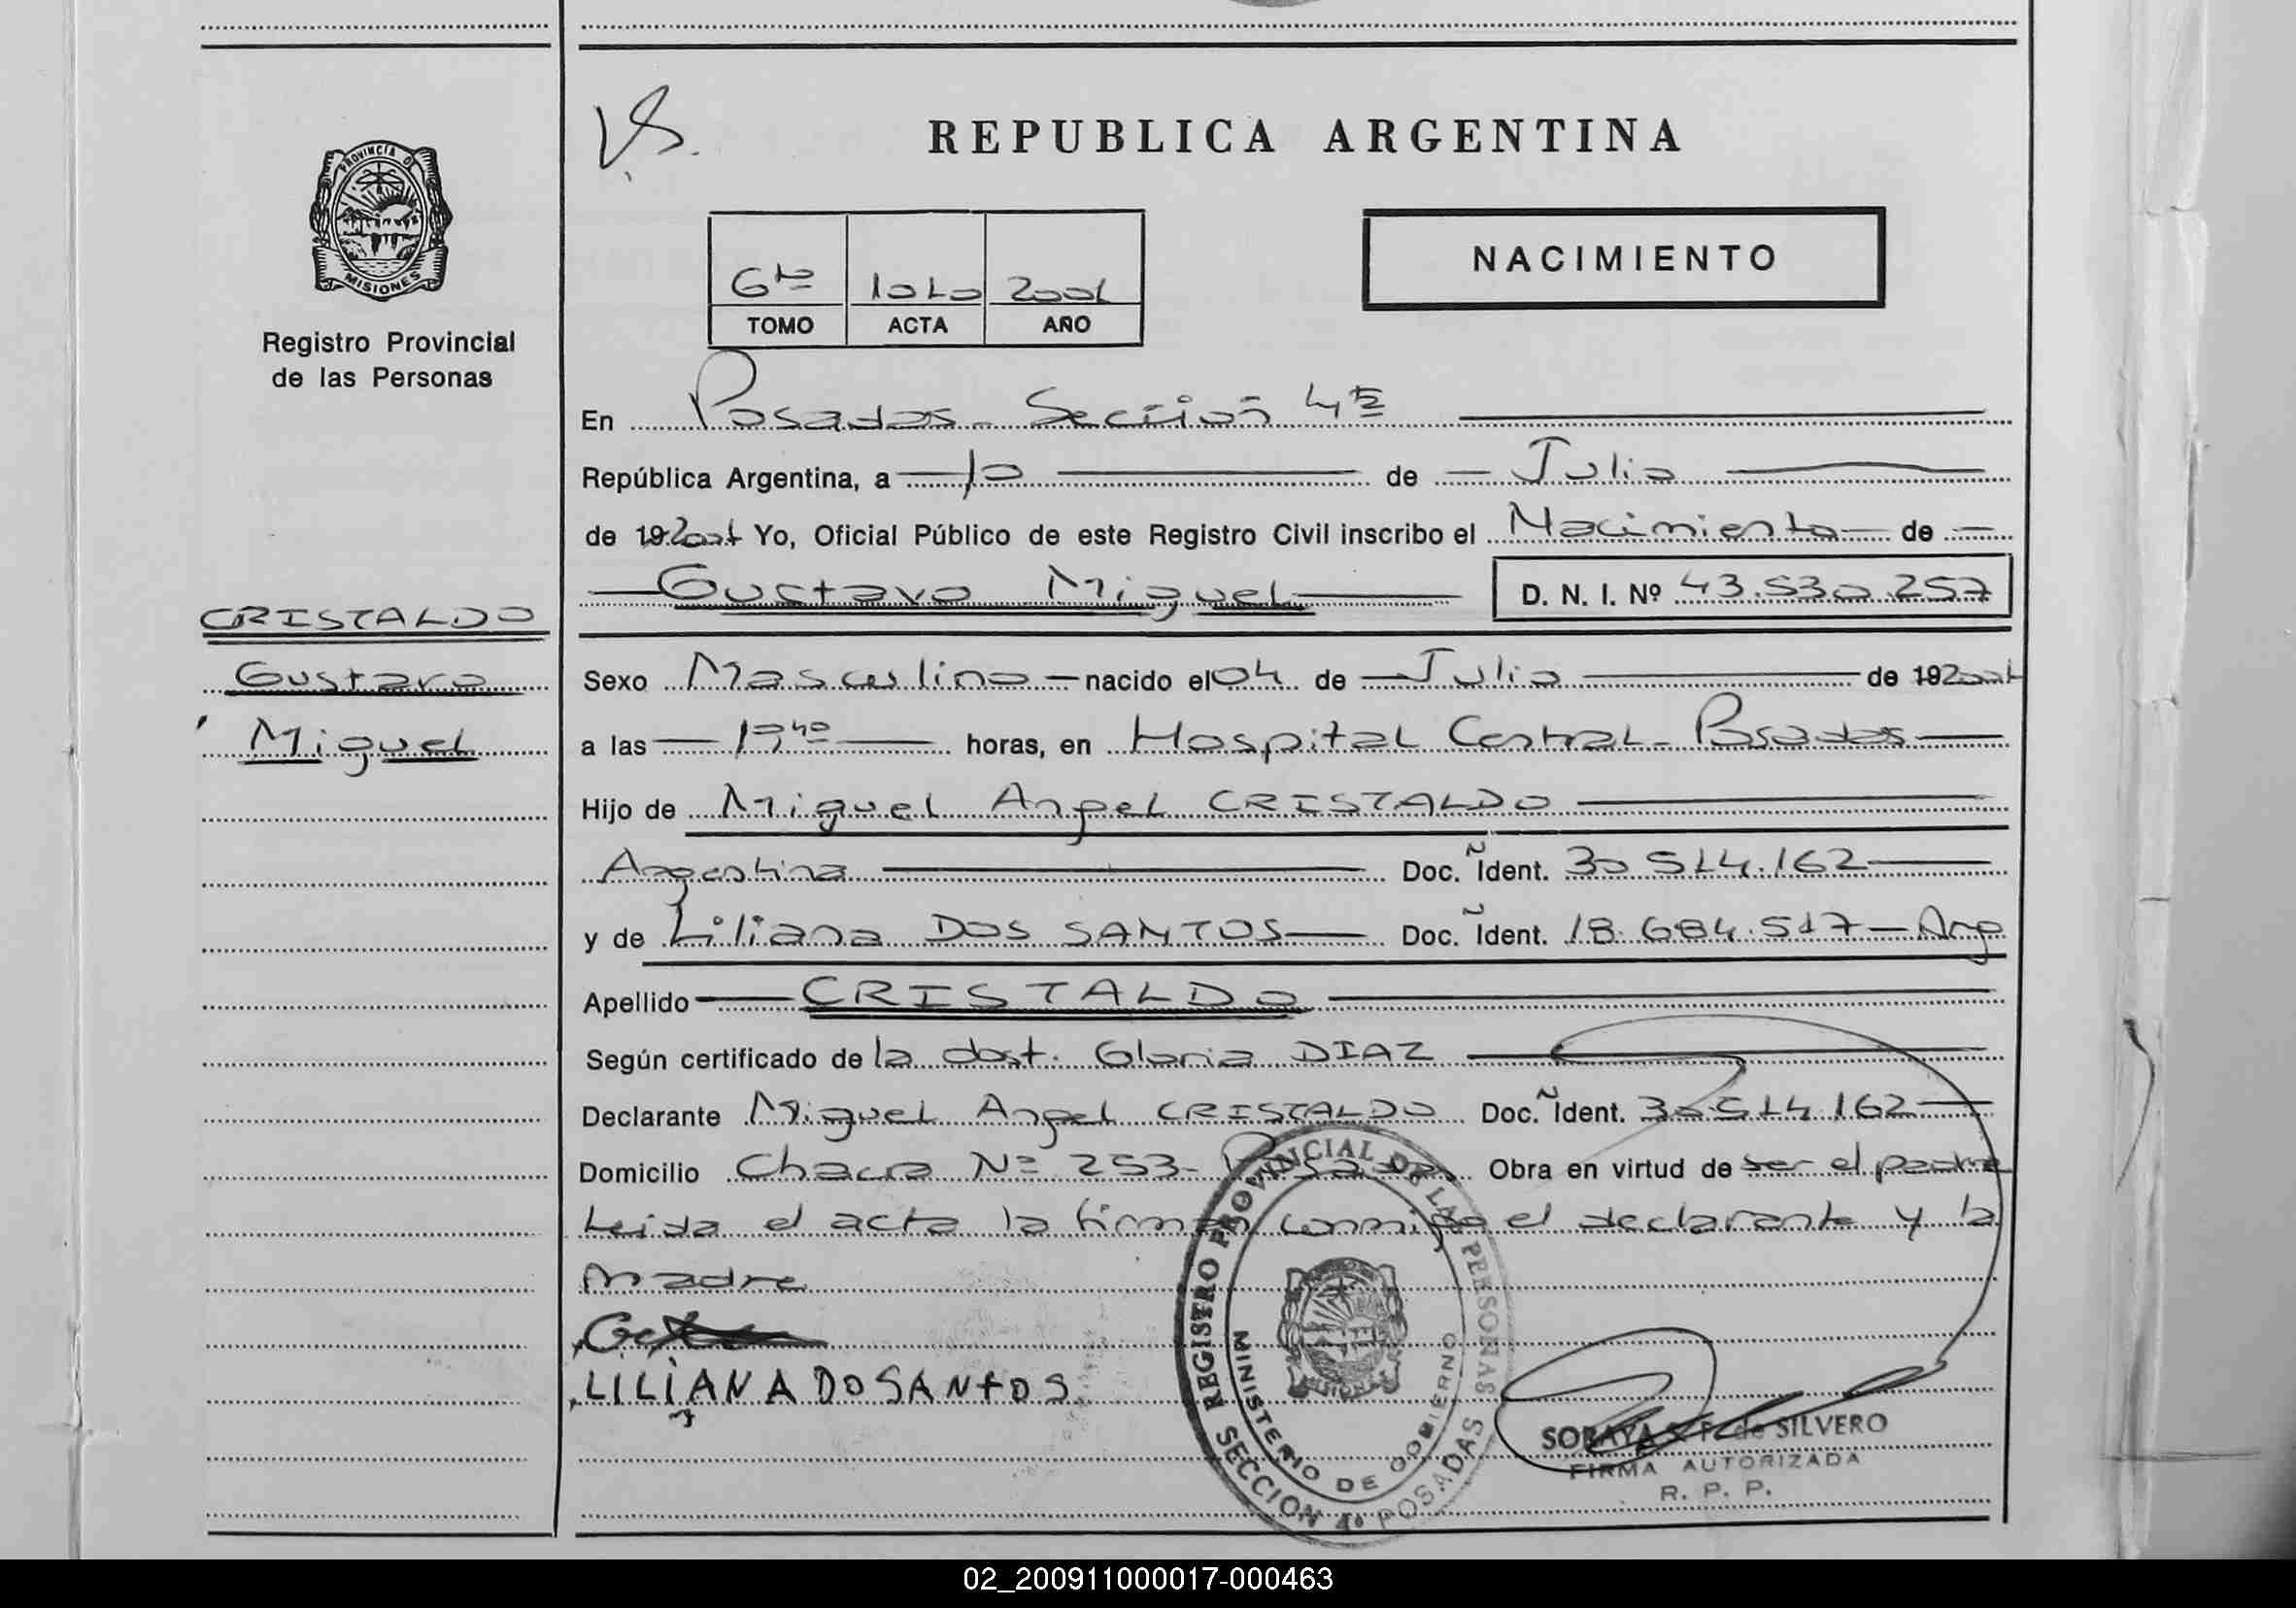 REPUBLICA ARGENTINA
PROVINCIA DE
MISIONES
Registro Provincial
de las Personas
NACIMIENTO
6to 1010 2001
TOMO ACTA AÑO
En Posadas - Sección 4ta
República Argentina, a 10 de Julio
de 19 2001 Yo, Oficial Público de este Registro Civil inscribo el Nacimiento de
Gustavo Miguel D. N. I. Nº 43.530.257
CRISTALDO
Gustavo
Miguel
Sexo Masculino nacido el 04 de Julio de 19 2001
a las horas, en Hospital Central - Posadas
Hijo de Miguel Angel CRISTALDO
Argentina Doc. Ident. 30.514.162
y de Liliana DOS SANTOS Doc. Ident. 18.684.517 - Arg
Apellido CRISTALDO
Según certificado de la obst. Gloria DIAZ
Declarante Miguel Angel CRISTALDO Doc. Ident. 30.514.162
Domicilio Chacra Nº 253 - Posadas Obra en virtud de ser el padre
Leida el acta la firman conmigo el declarante y la
Madre
LILIANA DOSANTOS
REGISTRO PROVINCIAL DE LAS PERSONAS
MINISTERIO DE GOBIERNO
SECCION 4º POSADAS
SORAYA F. de SILVERO
FIRMA AUTORIZADA
R. P. P.
02_200911000017-000463